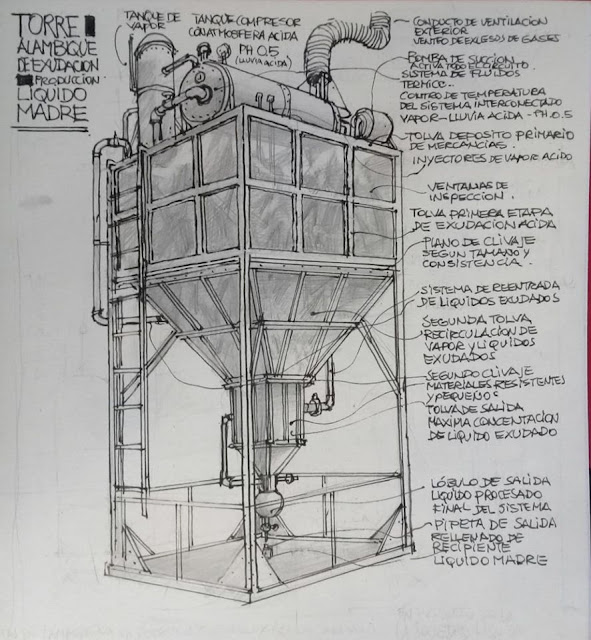 TORRE
ALAMBIQUE
DE EXUDACION
PRODUCCION
LIQUIDO
MADRE
TANQUE DE
VAPOR
TANQUE COMPRESOR
CON ATMOSFERA ACIDA
PH 0.5
(LLUVIA ACIDA)
CONDUCTO DE VENTILACION
EXTERIOR
VENTEO DE EXCESOS DE GASES
BOMBA DE SUCCION
ACTIVA TODO EL CIRCUITO
SISTEMA DE FLUIDOS
TERMICO.
CONTRO DE TEMPERATURA
DEL SISTEMA INTERCONECTADO
VAPOR-LLUVIA ACIDA - PH.0.5
TOLVA DEPOSITO PRIMARIO
DE MERCANCIAS.
INYECTORES DE VAPOR ACIDO
VENTANAS DE
INSPECCION.
TOLVA PRIMERA ETAPA
DE EXUDACION ACIDA
PLANO DE CLIVAJE
SEGUN TAMAÑO Y
CONSISTENCIA.
SISTEMA DE REENTRADA
DE LIQUIDOS EXUDADOS
SEGUNDA TOLVA
RECIRCULACION DE
VAPOR Y LIQUIDOS
EXUDADOS
SEGUNDO CLIVAJE
MATERIALES RESISTENTES
Y PEQUEÑOS
TOLVA DE SALIDA
MAXIMA CONCENTACION
DE LIQUIDO EXUDADO
LÓBULO DE SALIDA
LIQUIDO PROCESADO
FINAL DEL SISTEMA
PIPETA DE SALIDA
RELLENADO DE
RECIPIENTE
LIQUIDO MADRE